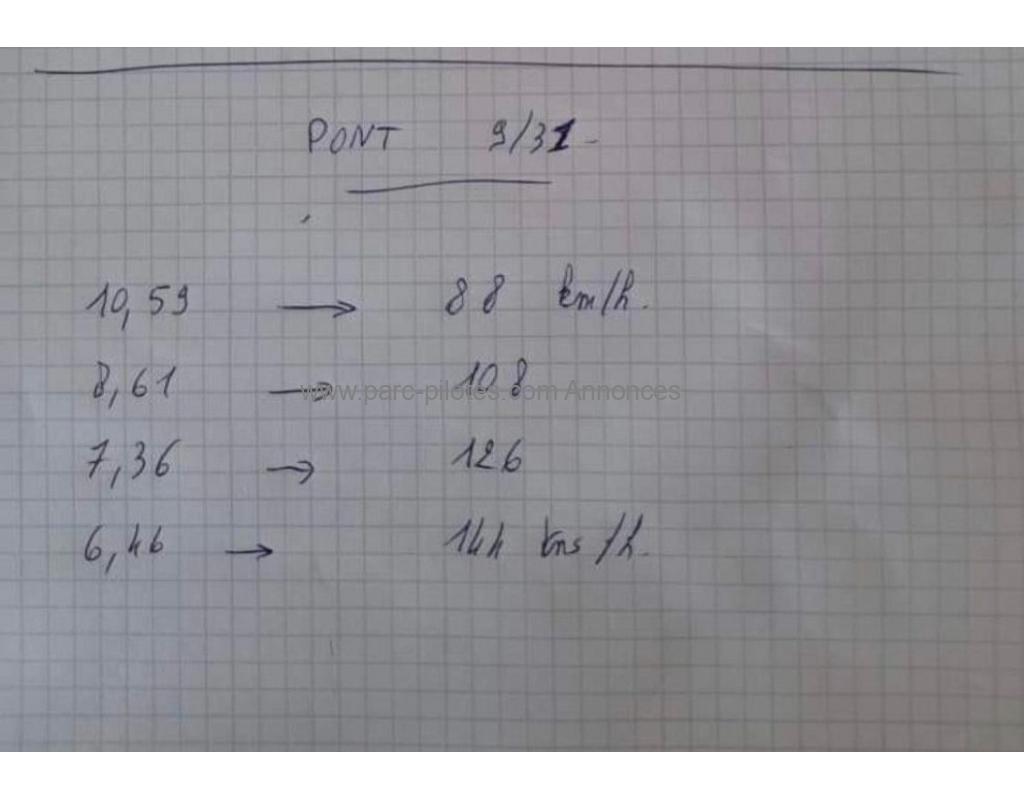 PONT 9/31
10,59 → 88 km/h.
8,61 → 108
www.parc-pilotes.com Annonces
7,36 → 126
6,46 → 144 kms/h.